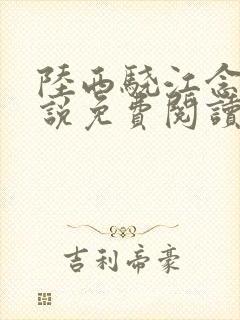 陸西驍江念
說免費閱讀
吉利帝豪